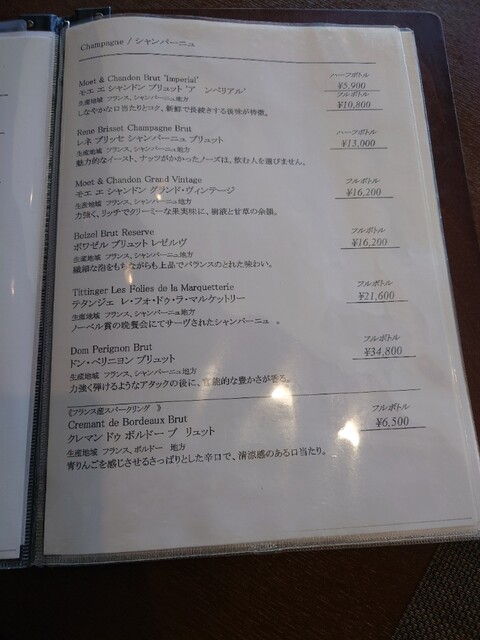 Champagne / シャンパーニュ
Moet & Chandon Brut 'Imperial' ハーフボトル
モエ エ シャンドン ブリュット 'ア　ンペリアル' ¥5,900
生産地域 フランス、シャンパーニュ地方 フルボトル
しなやかな口当たりとコク、新鮮で長続きする後味が特徴。 ¥10,800
Rene Brisset Champagne Brut ハーフボトル
レネ ブリッセ シャンパーニュ ブリュット ¥13,000
生産地域 フランス、シャンパーニュ地方
魅力的なイースト、ナッツがかかったノーズは、飲む人を選びません。
Moet & Chandon Grand Vintage フルボトル
モエ エ シャンドン グランド・ヴィンテージ ¥16,200
生産地域 フランス、シャンパーニュ地方
力強く、リッチでクリーミーな果実味に、樹液と甘草の余韻。
Boizel Brut Reserve フルボトル
ボワゼル ブリュット レゼルヴ ¥16,200
生産地域 フランス、シャンパーニュ地方
繊細な泡をもちながらも上品でバランスのとれた味わい。
Tittinger Les Folies de la Marquetterie フルボトル
テタンジェ　レ・フォ・ドゥ・ラ・マルケットリー ¥21,600
生産地域 フランス、シャンパーニュ地方
ノーベル賞の晩餐会にてサーヴされたシャンパーニュ　。
Dom Perignon Brut フルボトル
ドン・ペリニヨン ブリュット ¥34,800
生産地域 フランス、シャンパーニュ地方
力強く弾けるようなアタックの後に、官能的な豊かさが香る。
《フランス産スパークリング　》
Cremant de Bordeaux Brut フルボトル
クレマン ドゥ ボルドー ブ　リュット ¥6,500
生産地域 フランス、ボルドー　地方
青りんごを感じさせるさっぱりとした辛口で、清涼感のある口当たり。